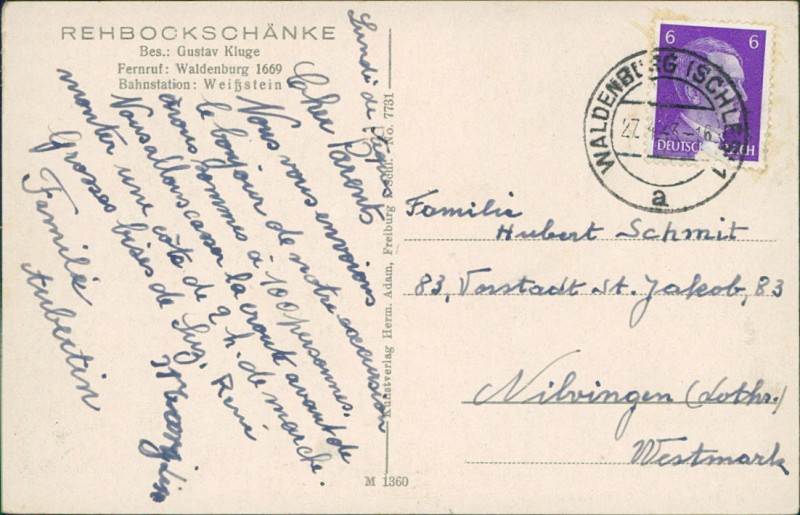 REHBOCKSCHÄNKE
Bes.: Gustav Kluge
Fernruf: Waldenburg 1669
Bahnstation: Weißstein
Lundi de Pâques
Cher Parents
Nous vous envoions
le bonjour de notre excursion
nous sommes à 100 personnes.
Nous allons casser la croute avant de
monter une côte de 2 h. de marche.
Grosses bises de Suzi, René
Familie
Aubertin
Kunstverlag Herm. Adam, Freiburg No. 7731
M 1360
6 6
DEUTSCHES REICH
WALDENBURG (SCHLES) 1
a
Familie
Hubert Schmit
83, Vorstadt St. Jakob, 83
Nilvingen (Lothr.)
Westmark